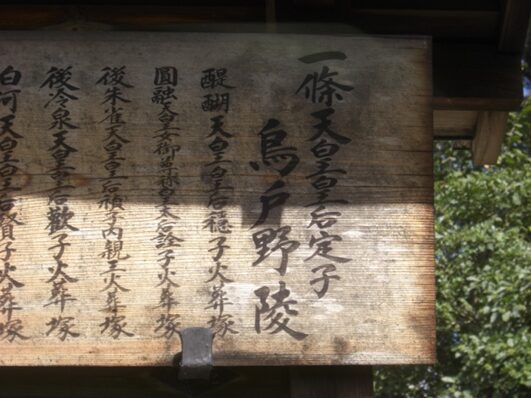 一條天皇皇后定子
鳥戸野陵
醍醐天皇皇后穏子火葬塚
圓融天皇御尊母皇太后詮子火葬塚
後朱雀天皇皇后禎子内親王火葬塚
後冷泉天皇皇后歡子火葬塚
白河天皇皇后賢子火葬塚